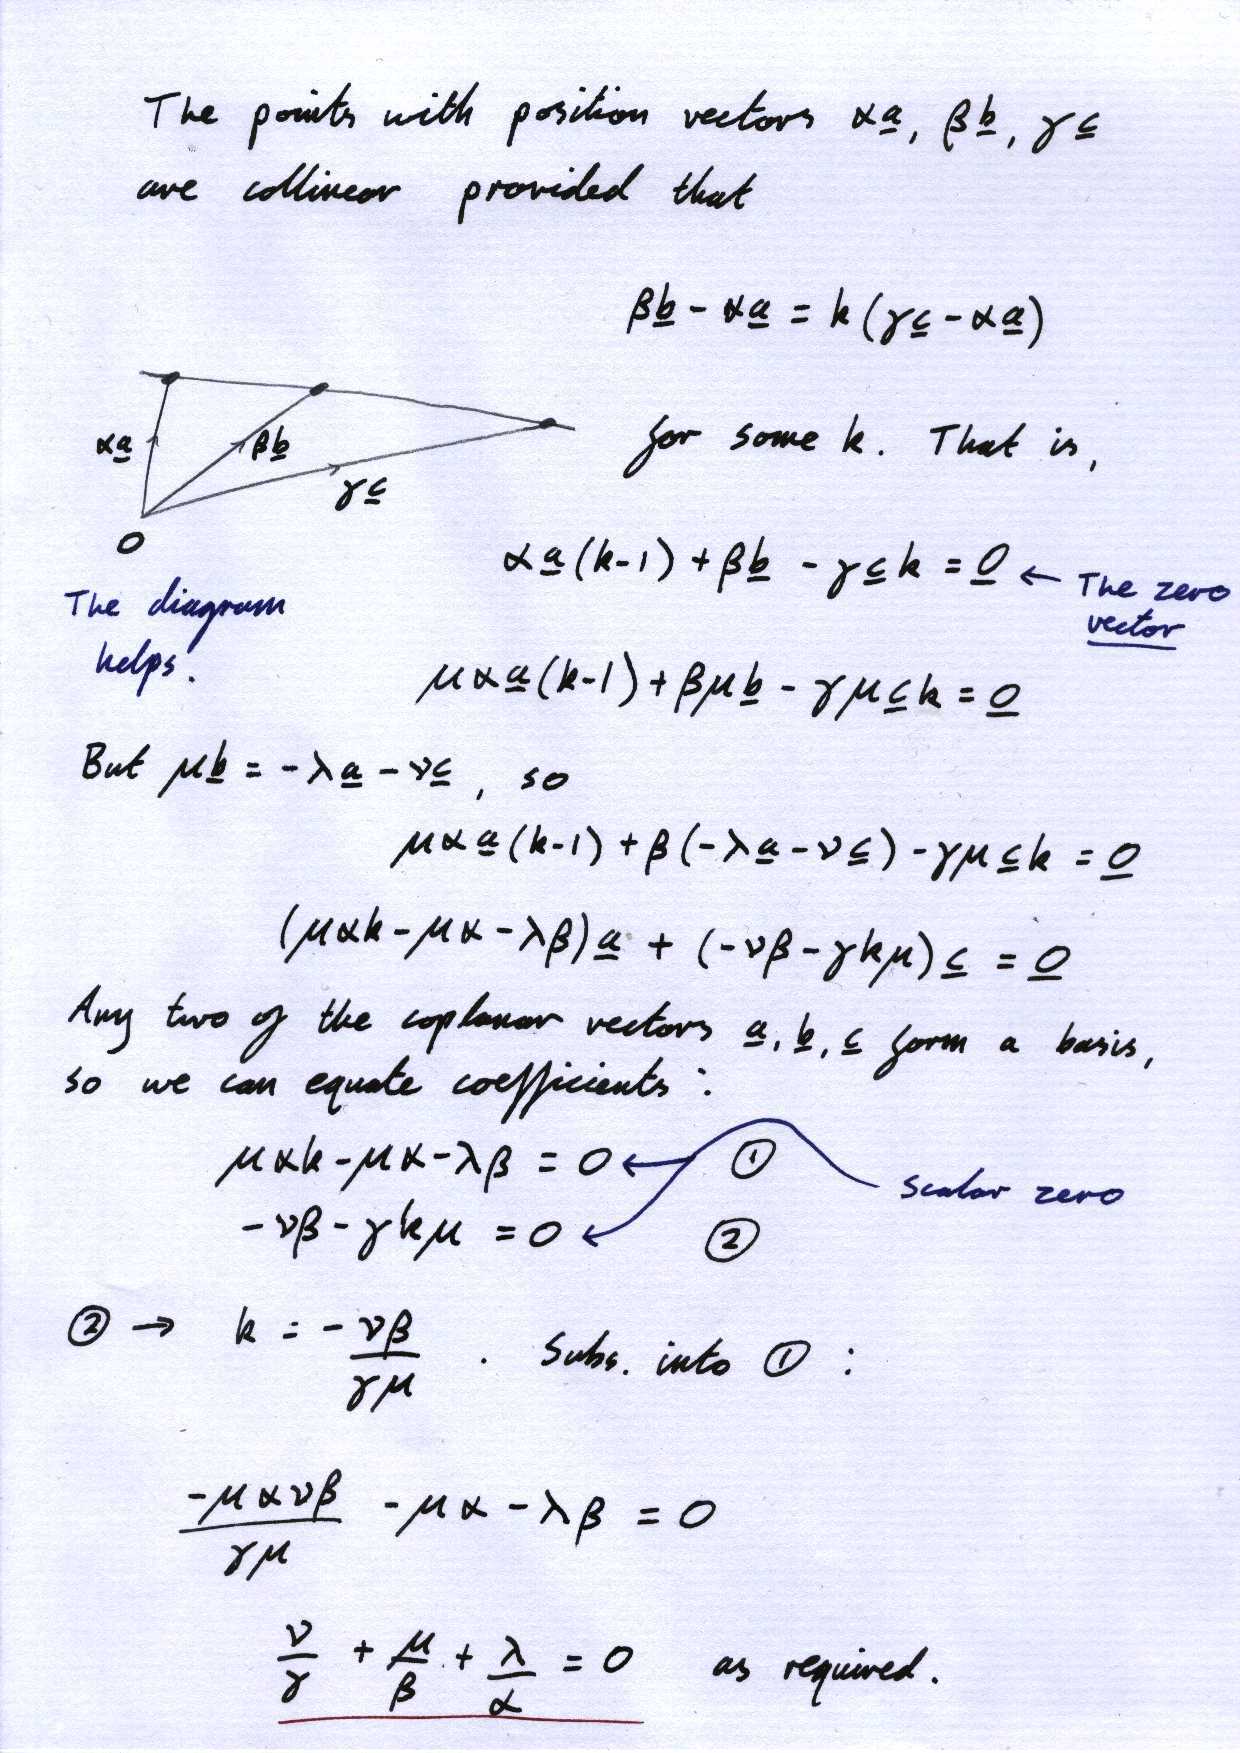 The points with position vectors αa, βb, γc
are collinear provided that
βb - αa = k(γc - αa)
αa
βb
γc
O
for some k. That is,
αa(k-1) + βb - γck = 0 ← The zero
vector
The diagram
helps.
μαa(k-1) + βμb - γμck = 0
But μb = -λa - νc, so
μαa(k-1) + β(-λa - νc) - γμck = 0
(μαk - μα - λβ)a + (-νβ - γkμ)c = 0
Any two of the coplanar vectors a, b, c form a basis,
so we can equate coefficients:
μαk - μα - λβ = 0 ①
scalar zero
-νβ - γkμ = 0 ②
② → k = -νβ/γμ . Subs. into ① :
-μανβ/γμ - μα - λβ = 0
ν/γ + μ/β + λ/α = 0 as required.